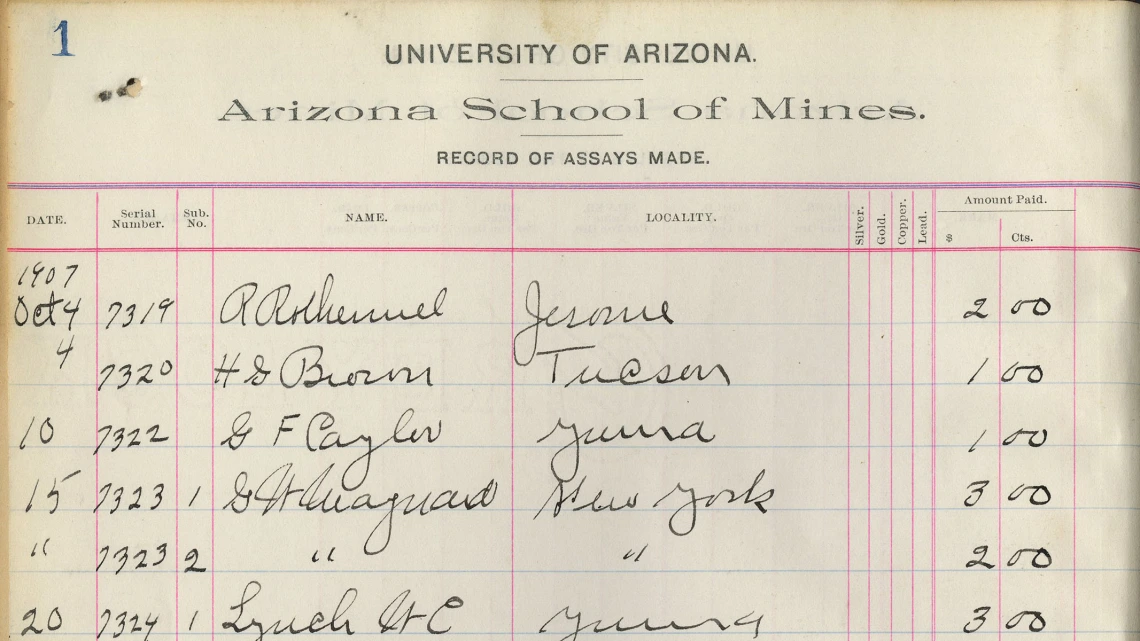 1
UNIVERSITY OF ARIZONA.
Arizona School of Mines.
RECORD OF ASSAYS MADE.
DATE. Serial Number. Sub. No. NAME. LOCALITY. Silver. Gold. Copper. Lead. Amount Paid. $ Cts.
1907
Oct 4 7319 R Rothermel Jerome 2 00
4 7320 H G Brown Tucson 1 00
10 7322 G F Cayler Yuma 1 00
15 7323 1 G W New York 3 00
" 7323 2 " " 2 00
20 7324 1 Lynch W C Yuma 3 00